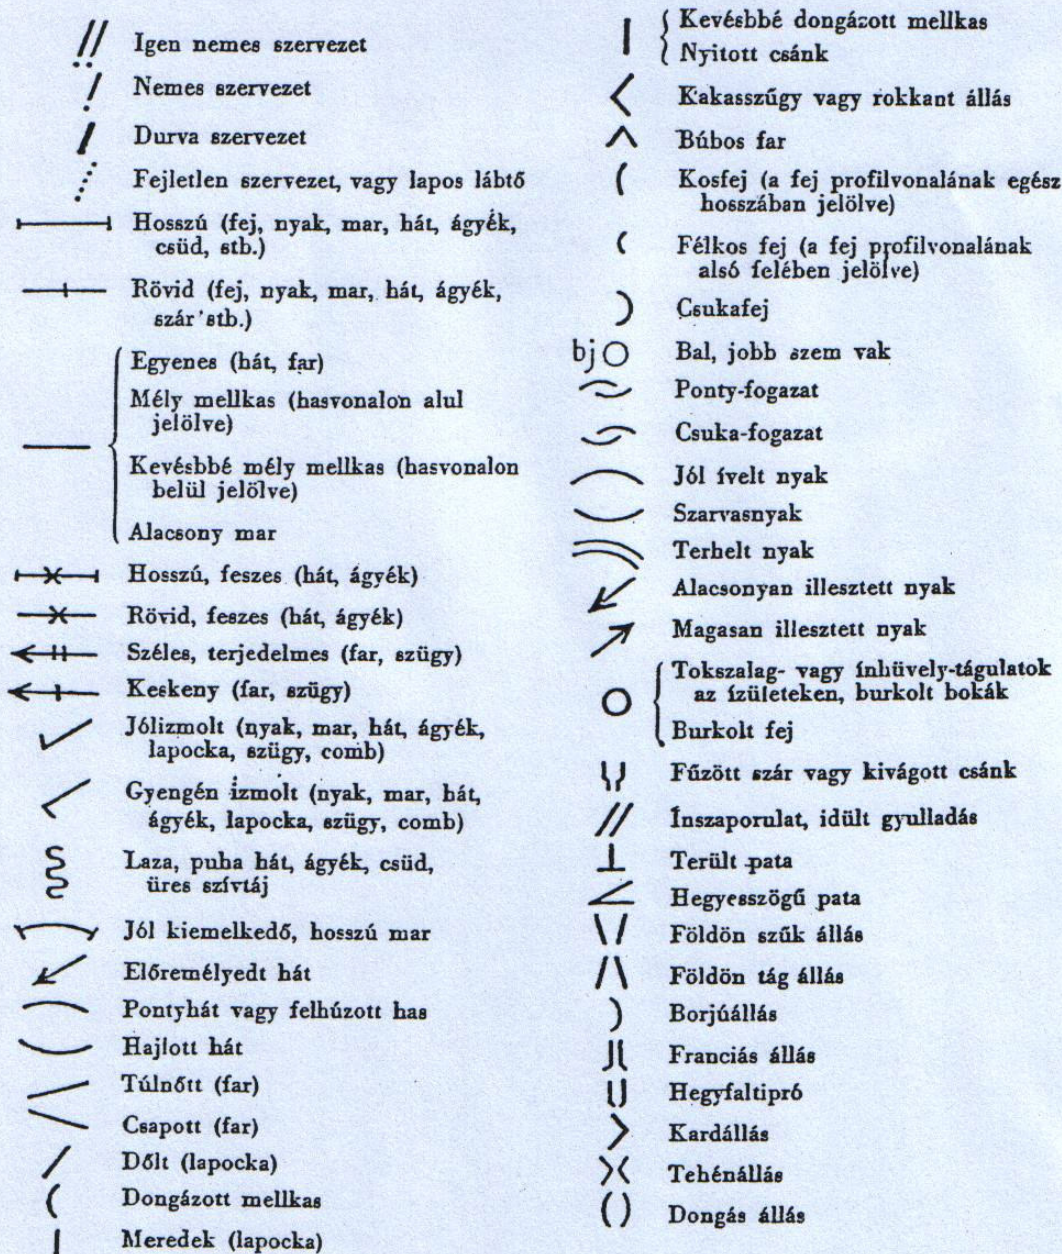 Igen nemes szervezet
Nemes szervezet
Durva szervezet
Fejletlen szervezet, vagy lapos lábtő
Hosszú (fej, nyak, mar, hát, ágyék,
csüd, stb.)
Rövid (fej, nyak, mar, hát, ágyék,
szár stb.)
Egyenes (hát, far)
Mély mellkas (hasvonalon alul
jelölve)
Kevésbbé mély mellkas (hasvonalon
belül jelölve)
Alacsony mar
Hosszú, feszes (hát, ágyék)
Rövid, feszes (hát, ágyék)
Széles, terjedelmes (far, szügy)
Keskeny (far, szügy)
Jólizmolt (nyak, mar, hát, ágyék,
lapocka, szügy, comb)
Gyengén izmolt (nyak, mar, hát,
ágyék, lapocka, szügy, comb)
Laza, puha hát, ágyék, csüd,
üres szívtáj
Jól kiemelkedő, hosszú mar
Előremélyedt hát
Pontyhát vagy felhúzott has
Hajlott hát
Túlnőtt (far)
Csapott (far)
Dőlt (lapocka)
Dongázott mellkas
Meredek (lapocka)
Kevésbbé dongázott mellkas
Nyitott csánk
Kakasszűgy vagy rokkant állás
Búbos far
Kosfej (a fej profilvonalának egész
hosszában jelölve)
Félkos fej (a fej profilvonalának
alsó felében jelölve)
Csukafej
bj Bal, jobb szem vak
Ponty-fogazat
Csuka-fogazat
Jól ívelt nyak
Szarvasnyak
Terhelt nyak
Alacsonyan illesztett nyak
Magasan illesztett nyak
Tokszalag- vagy ínhüvely-tágulatok
az ízületeken, burkolt bokák
Burkolt fej
Fűzött szár vagy kivágott csánk
Ínszaporulat, idült gyulladás
Terült pata
Hegyesszögű pata
Földön szűk állás
Földön tág állás
Borjúállás
Franciás állás
Hegyfaltipró
Kardállás
Tehénállás
Dongás állás